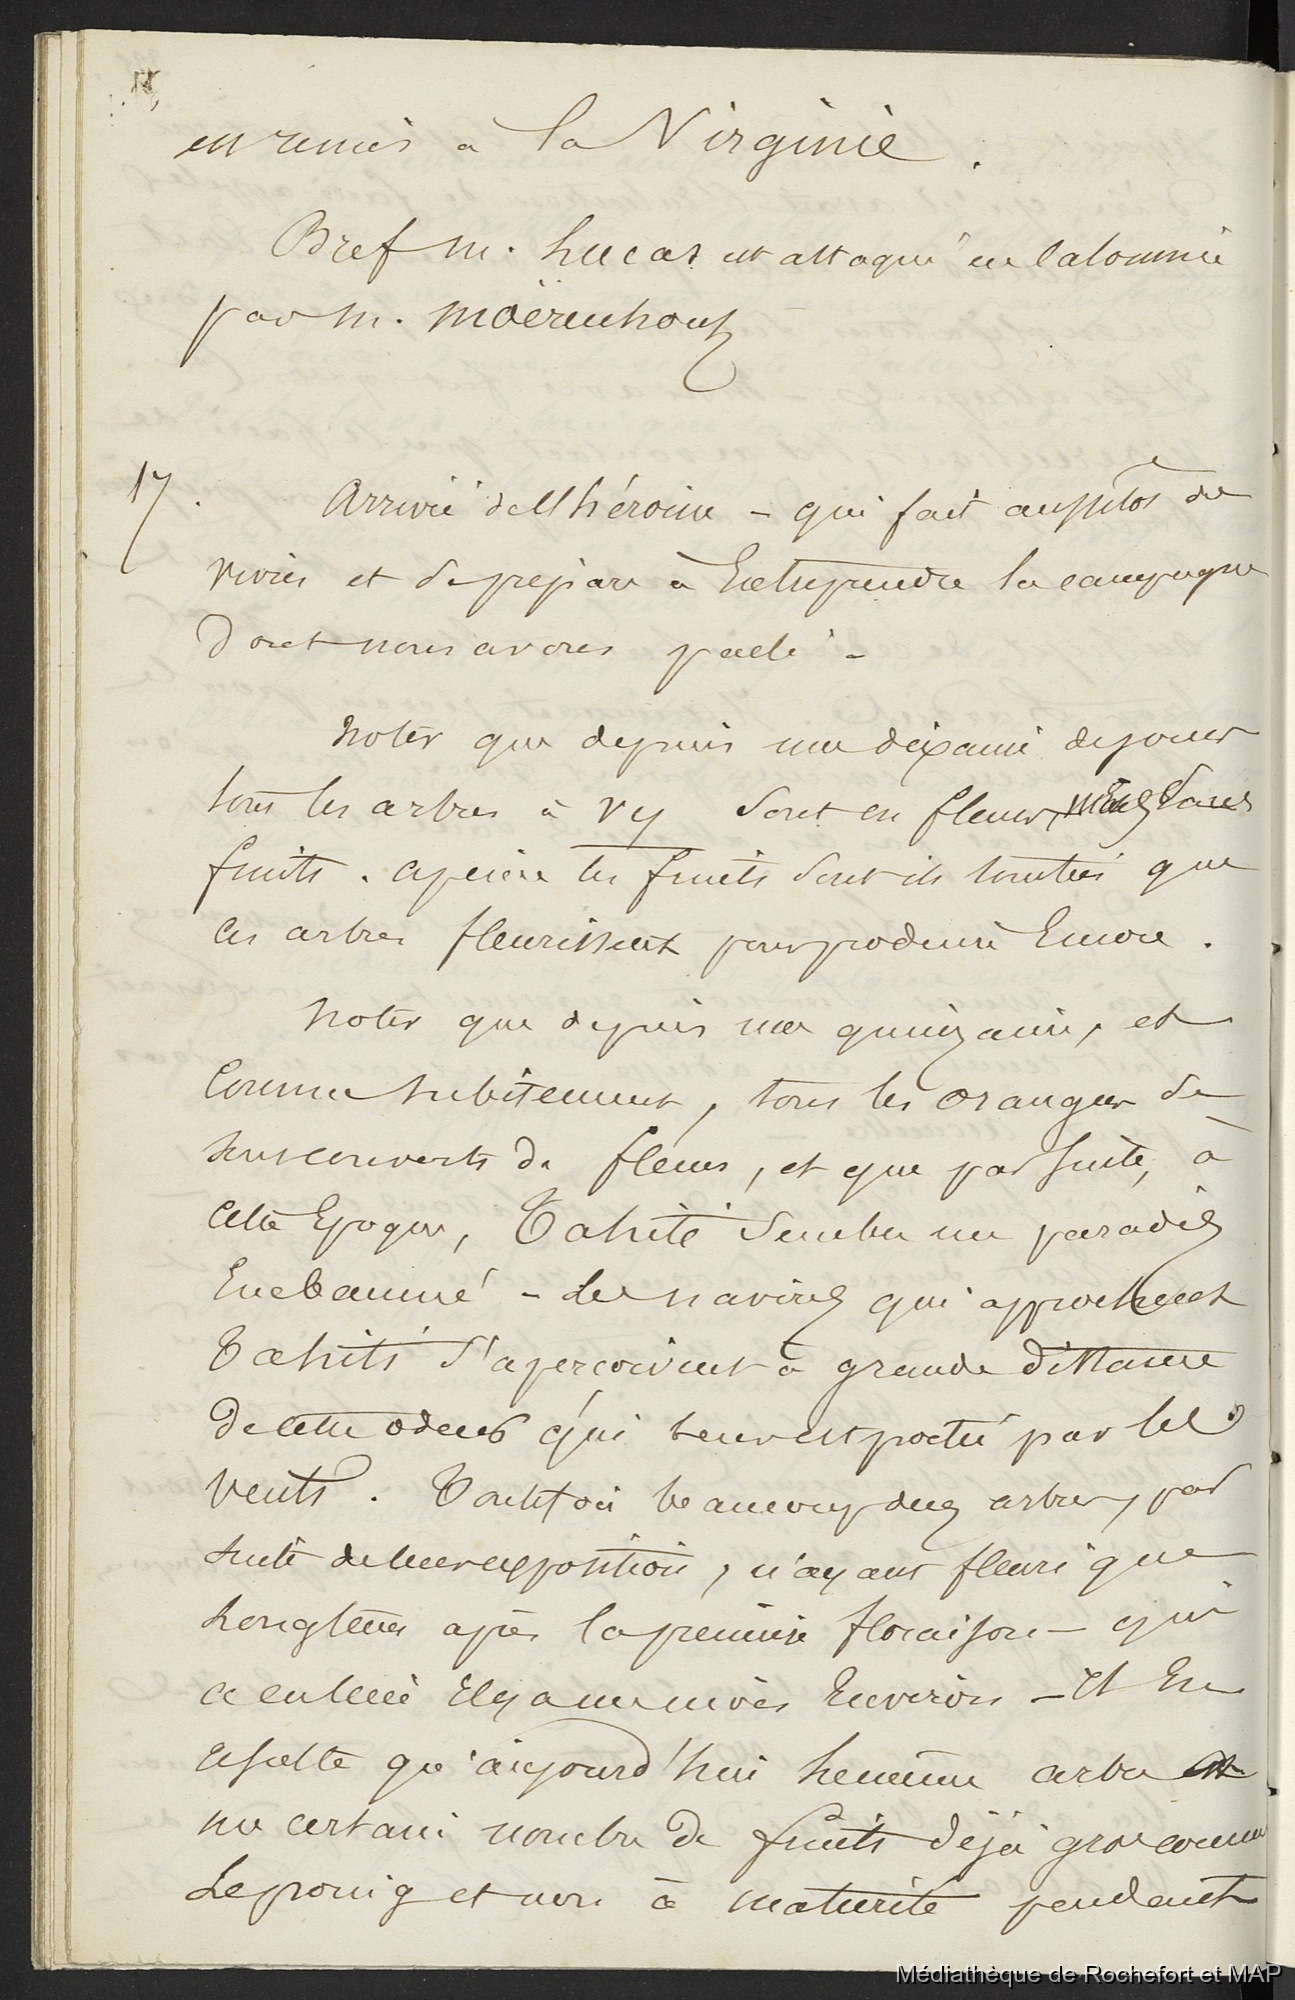 en remis à la Virginie.
Bref M. Lucas est attaqué en calomnie
par M. Moërenhout
17. Arrivée de l'héroine - qui fait aussitôt des
vivres et se prépare à Entreprendre la campagne
dont nous avons parlé -
Noter que depuis une dixaine de jours
tous les arbres à Vy sont en fleurs, mais sans
fruits. apeine les fruits sont ils tombés que
ces arbres fleurissent pour produire Encore.
Noter que depuis une quinzaine, et
Comme subitement, tous les oranger se
sont couverts de fleurs, et que par suite, à
cette Epoque, Tahiti semble un paradis
Embaumé - Les navires qui approchent
Tahiti s'aperçoivent à grande distance
de cette odeur qui leur est portée par les
vents. Toutefois beaucoup des arbres, par
suite de leur exposition, n'ayant fleuri que
longtems après la première floraison - qui
a eu lieu il y a un mois Environ - Il En
résulte qu'aujourd'hui le même arbre a
un certain nombre de fruits déjà gros comme
le poing et non à maturité pendant
Médiathèque de Rochefort et MAP